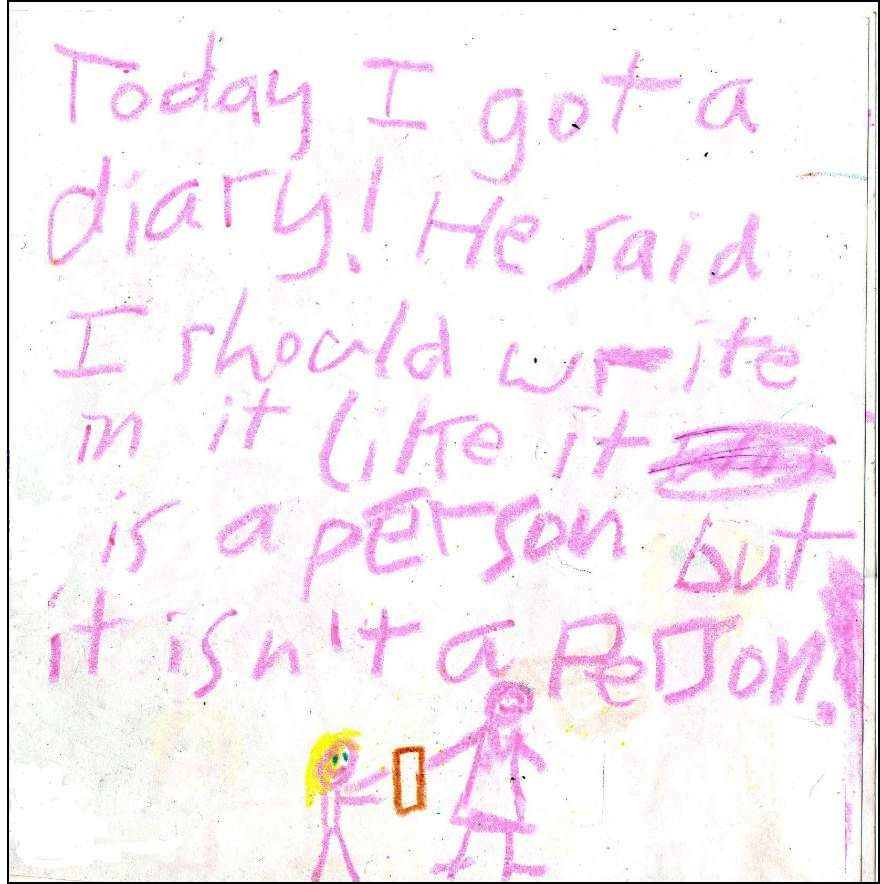 Today I got a
diary! He said
I should write
in it like it
is a person but
it isn't a Person!